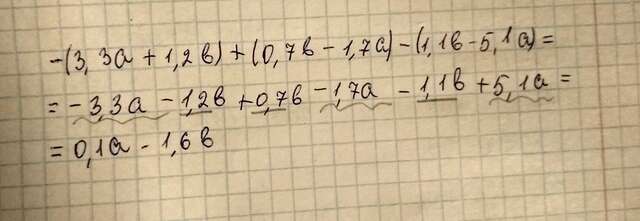 -(3,3a + 1,2в) + (0,7в - 1,7a) - (1,1в - 5,1a) =
= -3,3a - 1,2в + 0,7в - 1,7a - 1,1в + 5,1a =
= 0,1a - 1,6в